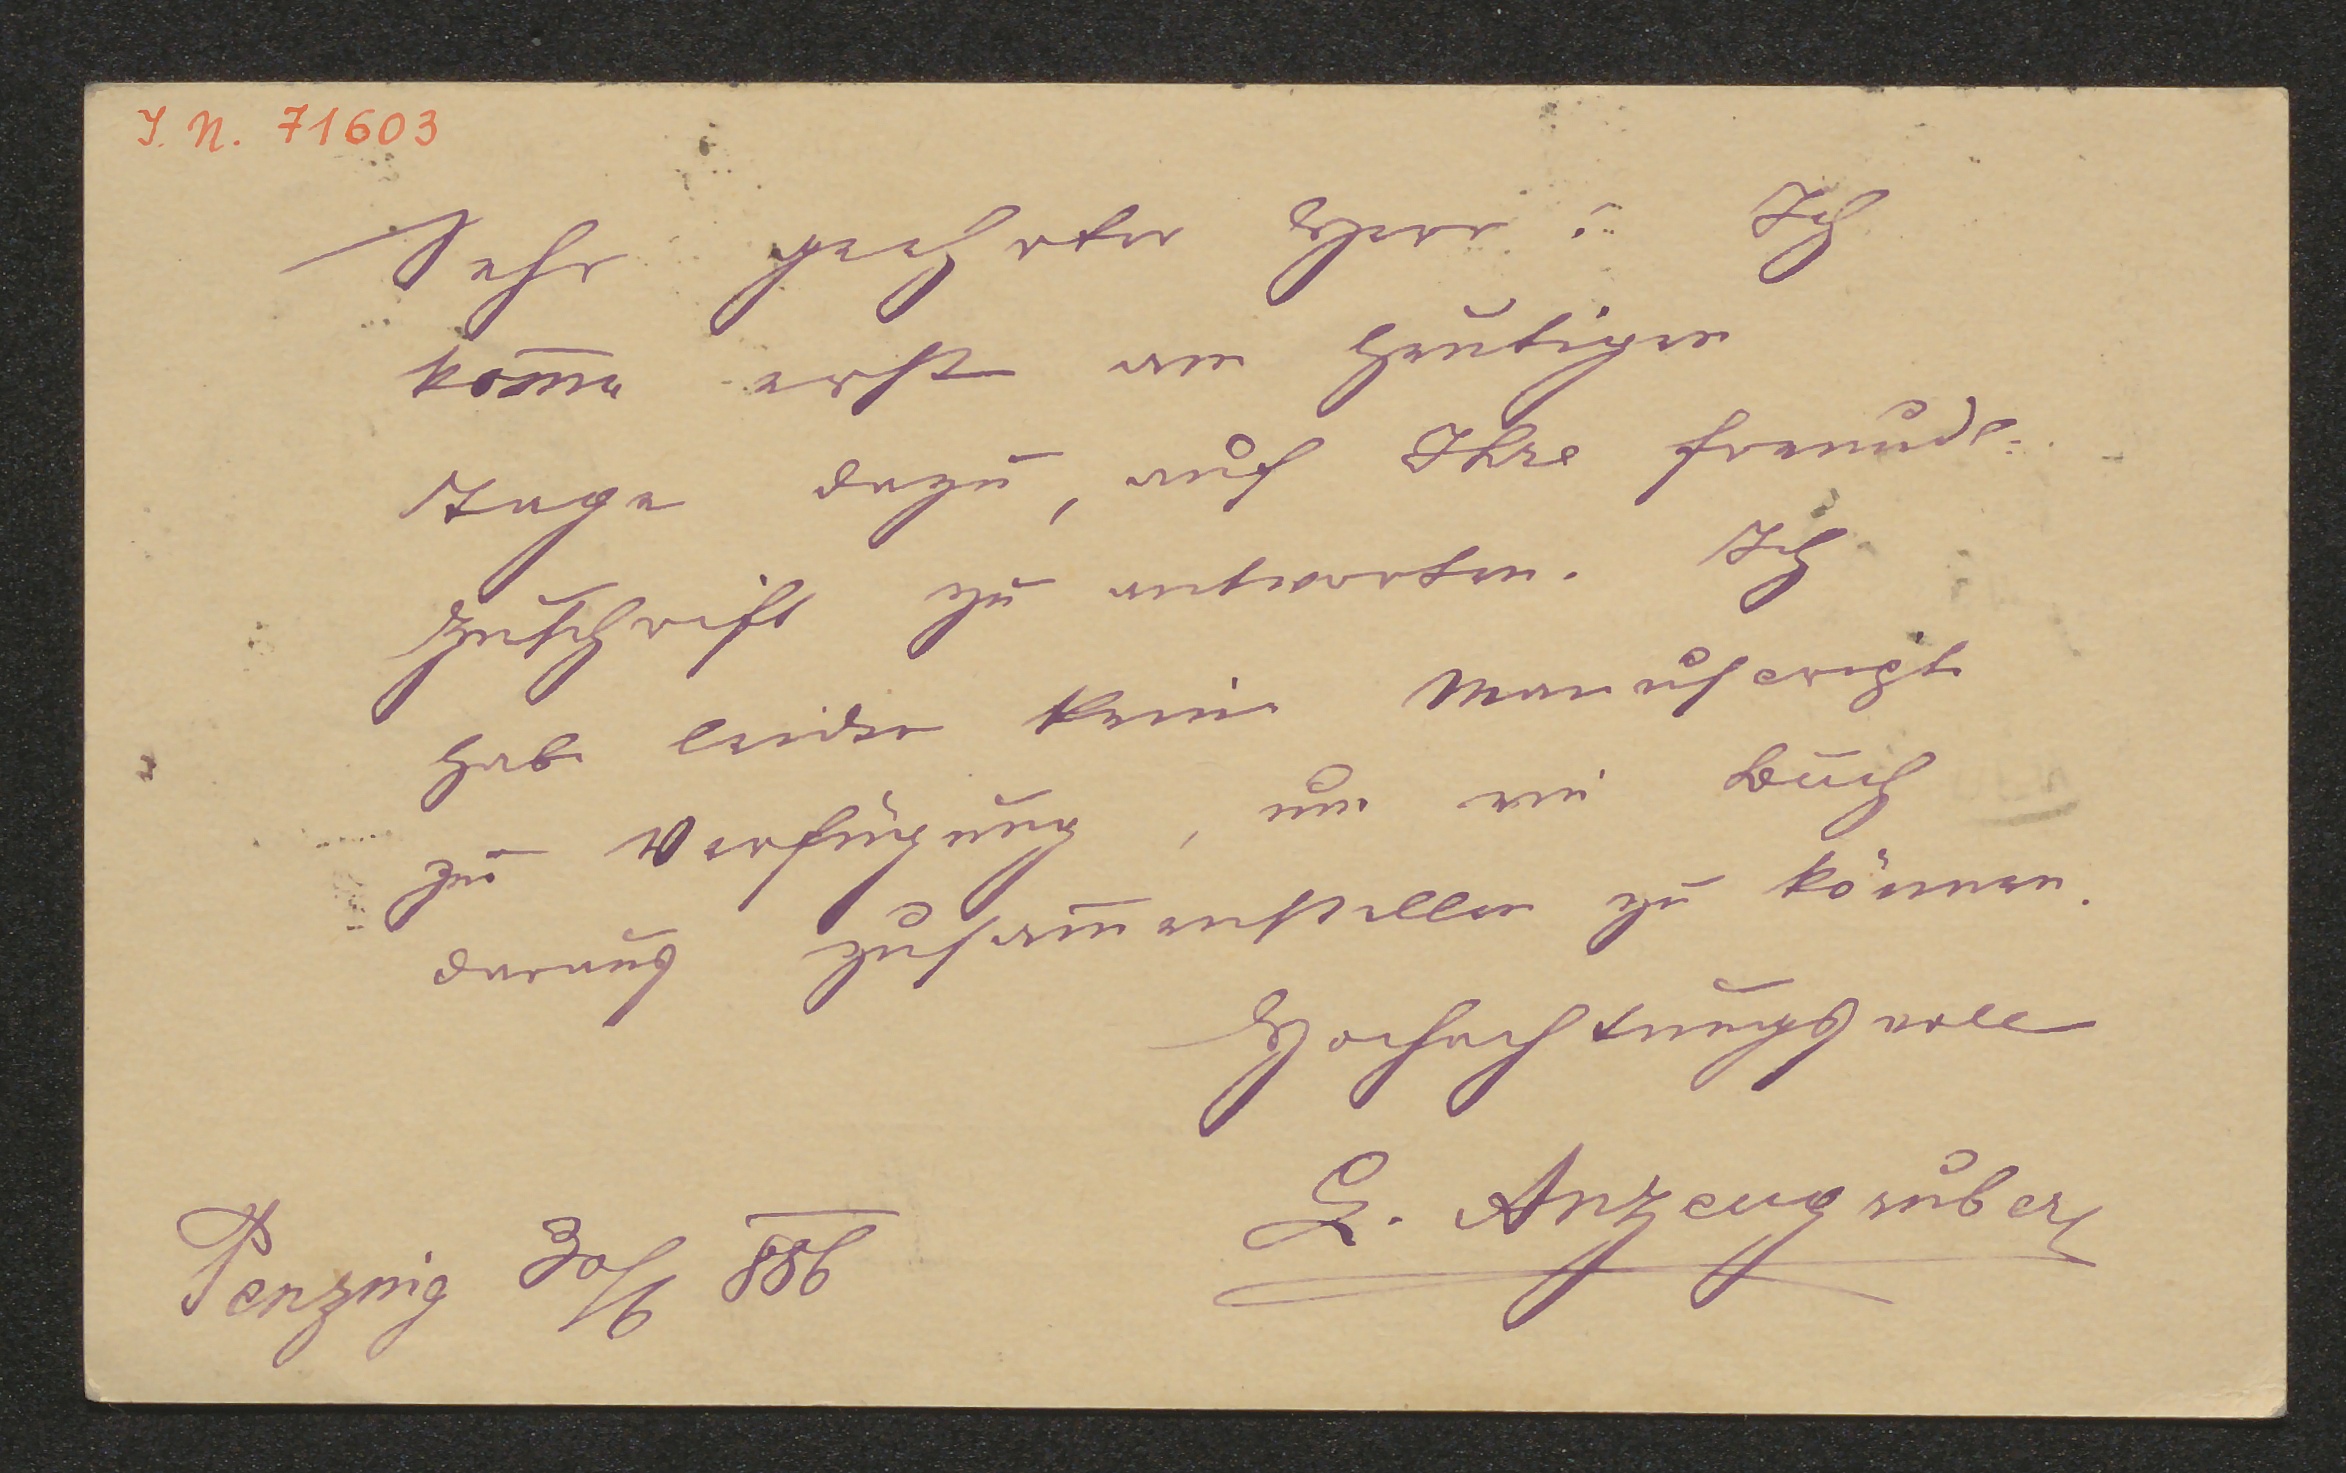 I. N. 71603
Sehr geehrter Herr! Ich
kom̅e erst am heutigen
Tage dazu, auf Ihre freundl.
Zuschrift zu antworten. Ich
habe leider kein Manuscript
zur Verfügung, um ein Buch
daraus zusam̅enstellen zu können.
Hochachtungsvoll
L. Anzengruber
Penzing 30/6 886